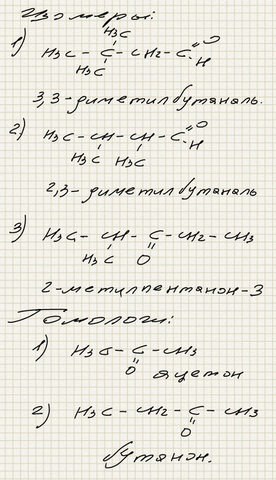 Изомеры:
1) H₃C
H₃C – C – CH₂ – C=O
H₃C H
3,3-диметилбутаналь.
2) H₃C – CH – CH – C=O
H₃C H₃C H
2,3-диметилбутаналь
3) H₃C – CH – C – CH₂ – CH₃
H₃C O
2-метилпентанон-3
Гомологи:
1) H₃C – C – CH₃
O ацетон
2) H₃C – CH₂ – C – CH₃
O
бутанон.